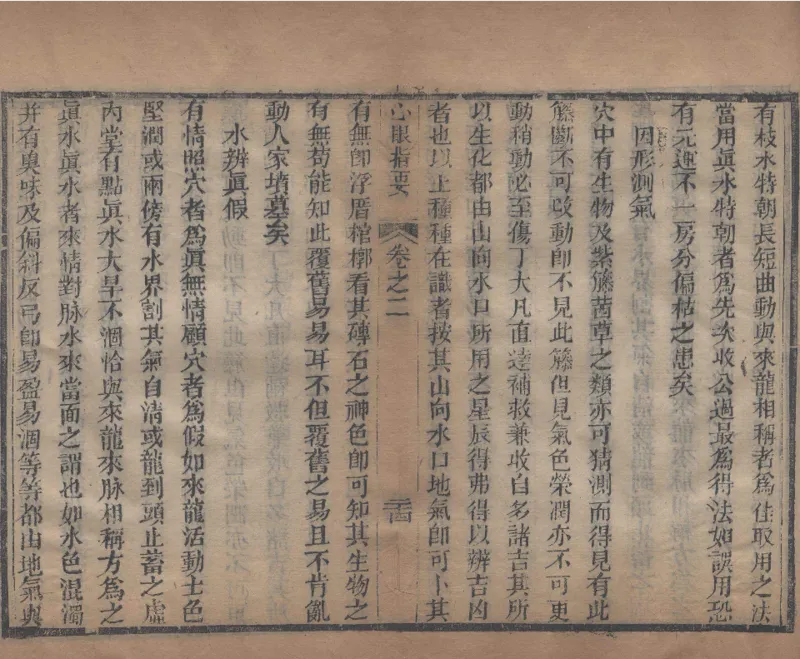 有枝水特朝長短曲動與來龍相稱者爲佳取用之法
當用眞水特朝者爲先次收公過最爲得法如誤用恐
有元運不一房分偏枯之患矣
因形測氣
穴中有生物及紫籐茜草之類亦可猜測而得見有此
籐斷不可改動卽不見此籐但見氣色榮潤亦不可更
動稍動必至傷丁大凡直達補救兼收白多諸吉其所
以生化都由山向水口所用之星辰得弗得以辨吉凶
者也以上種種在識者按其山向水口地氣卽可卜其
心眼指要 卷之二 二十四
有無卽浮厝棺槨看其磚石之神色卽可知其生物之
有無苟能知此覆舊易易耳不但覆舊之易且不肯亂
動人家墳墓矣
水辨眞假
有情照穴者爲眞無情顧穴者爲假如來龍活動土色
堅潤或兩傍有水界割其氣自淸或龍到頭止蓄之處
內堂有點眞水大旱不涸恰與來龍來脉相稱方爲之
眞水眞水者來情對脉水來當面之謂也如水色混濁
并有臭味及偏斜反弓卽易盈易涸等等都由地氣與